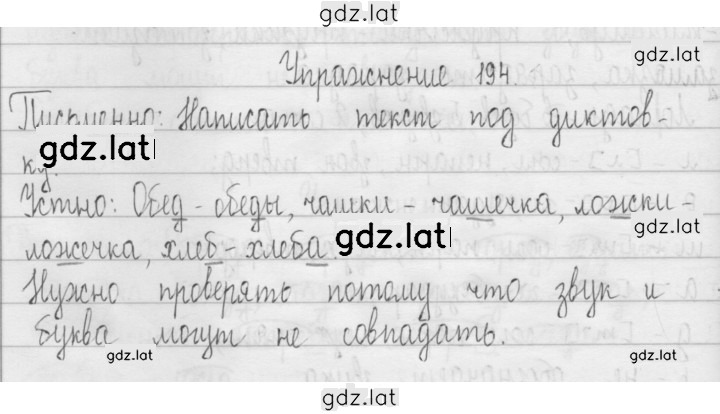 gdz.lat
Упражнение 194.
gdz.lat
Письменно: Написать текст под диктов-
gdz.lat
ку.
Устно: Обед - обеды, чашки - чашечка, ложки -
ложечка, хлеб - хлеба
gdz.lat
Нужно проверять потому что звук и
буква могут не совпадать.
gdz.lat
gdz.lat
gdz.lat